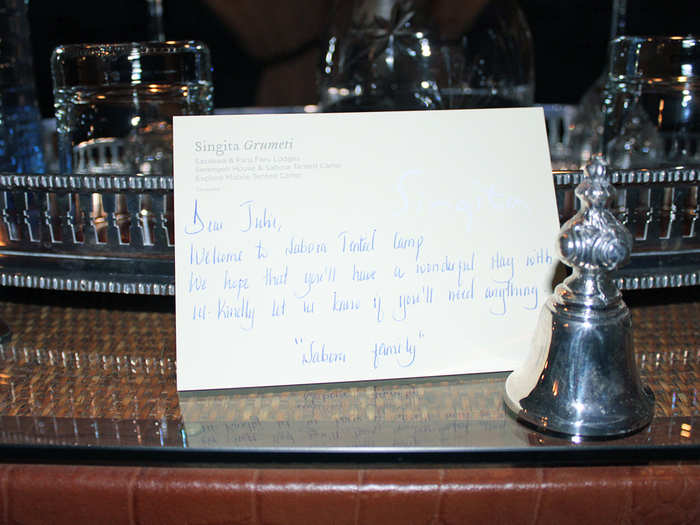 Singita Grumeti
Sasakwa & Faru Faru Lodges
Serengeti House & Sabora Tented Camp
Explore Mobile Tented Camp
Tanzania
Singita
Dear Julie,
Welcome to Sabora Tented Camp
We hope that you'll have a wonderful stay with
us. Kindly let us know if you'll need anything
"Sabora family"